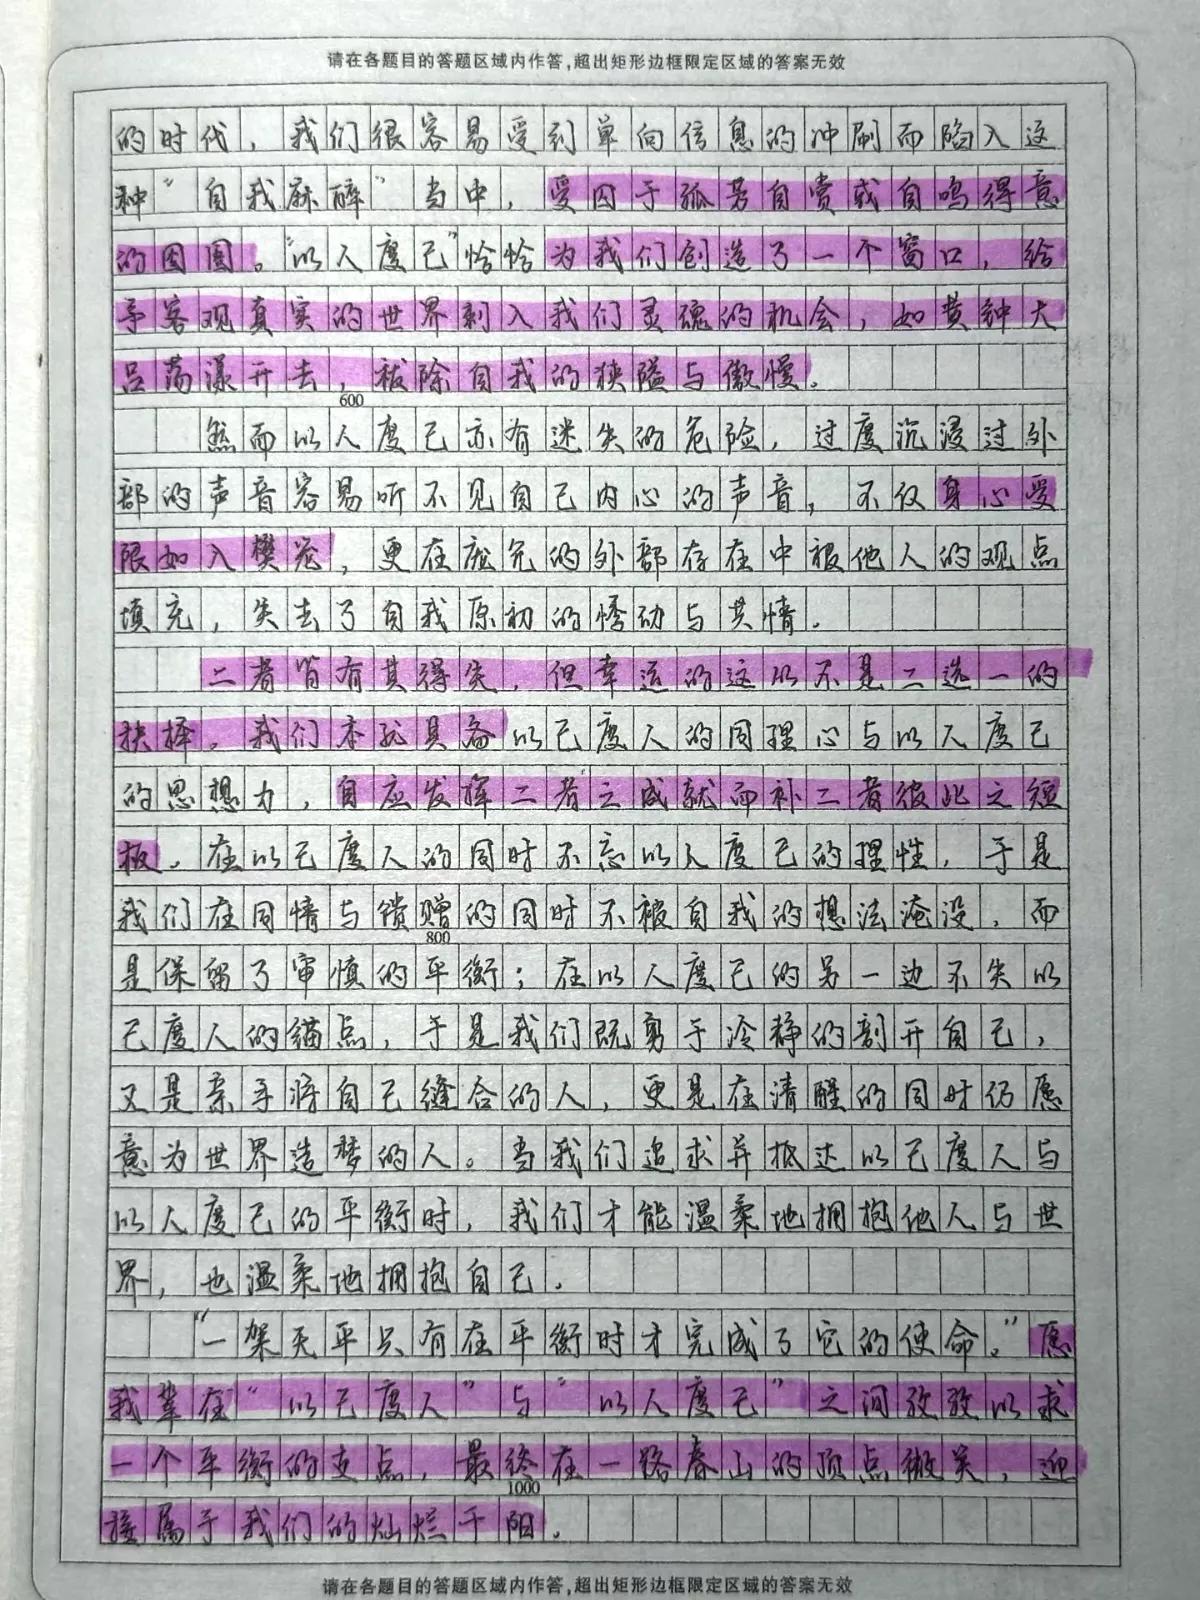 请在各题目的答题区域内作答,超出矩形边框限定区域的答案无效
的时代，我们很容易受到单向信息的冲刷而陷入这
种“自我麻醉”当中，受囚于孤芳自赏或自鸣得意
的囹圄。“以人度己”恰恰为我们创造了一个窗口，给
予客观真实的世界刺入我们灵魂的机会，如黄钟大
吕荡漾开去，祓除自我的狭隘与傲慢。
600
然而以人度己亦有迷失的危险，过度沉浸过外
部的声音容易听不见自己内心的声音，不仅身心受
限如入樊笼，更在庞冗的外部存在中被他人的观点
填充，失去了自我原初的悸动与共情。
二者皆有其得失，但幸运的这以不是二选一的
抉择。我们本就具备以己度人的同理心与以人度己
的思想力，自应发挥二者之成就而补二者彼此之短
板。在以己度人的同时不忘以人度己的理性，于是
我们在同情与馈赠的同时不被自我的想法淹没，而
800
是保留了审慎的平衡；在以人度己的另一边不失以
己度人的锚点，于是我们既勇于冷静的剖开自己，
又是亲手将自己缝合的人，更是在清醒的同时仍愿
意为世界造梦的人。当我们追求并抵达以己度人与
以人度己的平衡时，我们才能温柔地拥抱他人与世
界，也温柔地拥抱自己。
“一架天平只有在平衡时才完成了它的使命。”愿
我辈在“以己度人”与“以人度己”之间孜孜以求
一个平衡的支点，最终在一路春山的顶点微笑，迎
1000
接属于我们的灿烂千阳。
请在各题目的答题区域内作答,超出矩形边框限定区域的答案无效